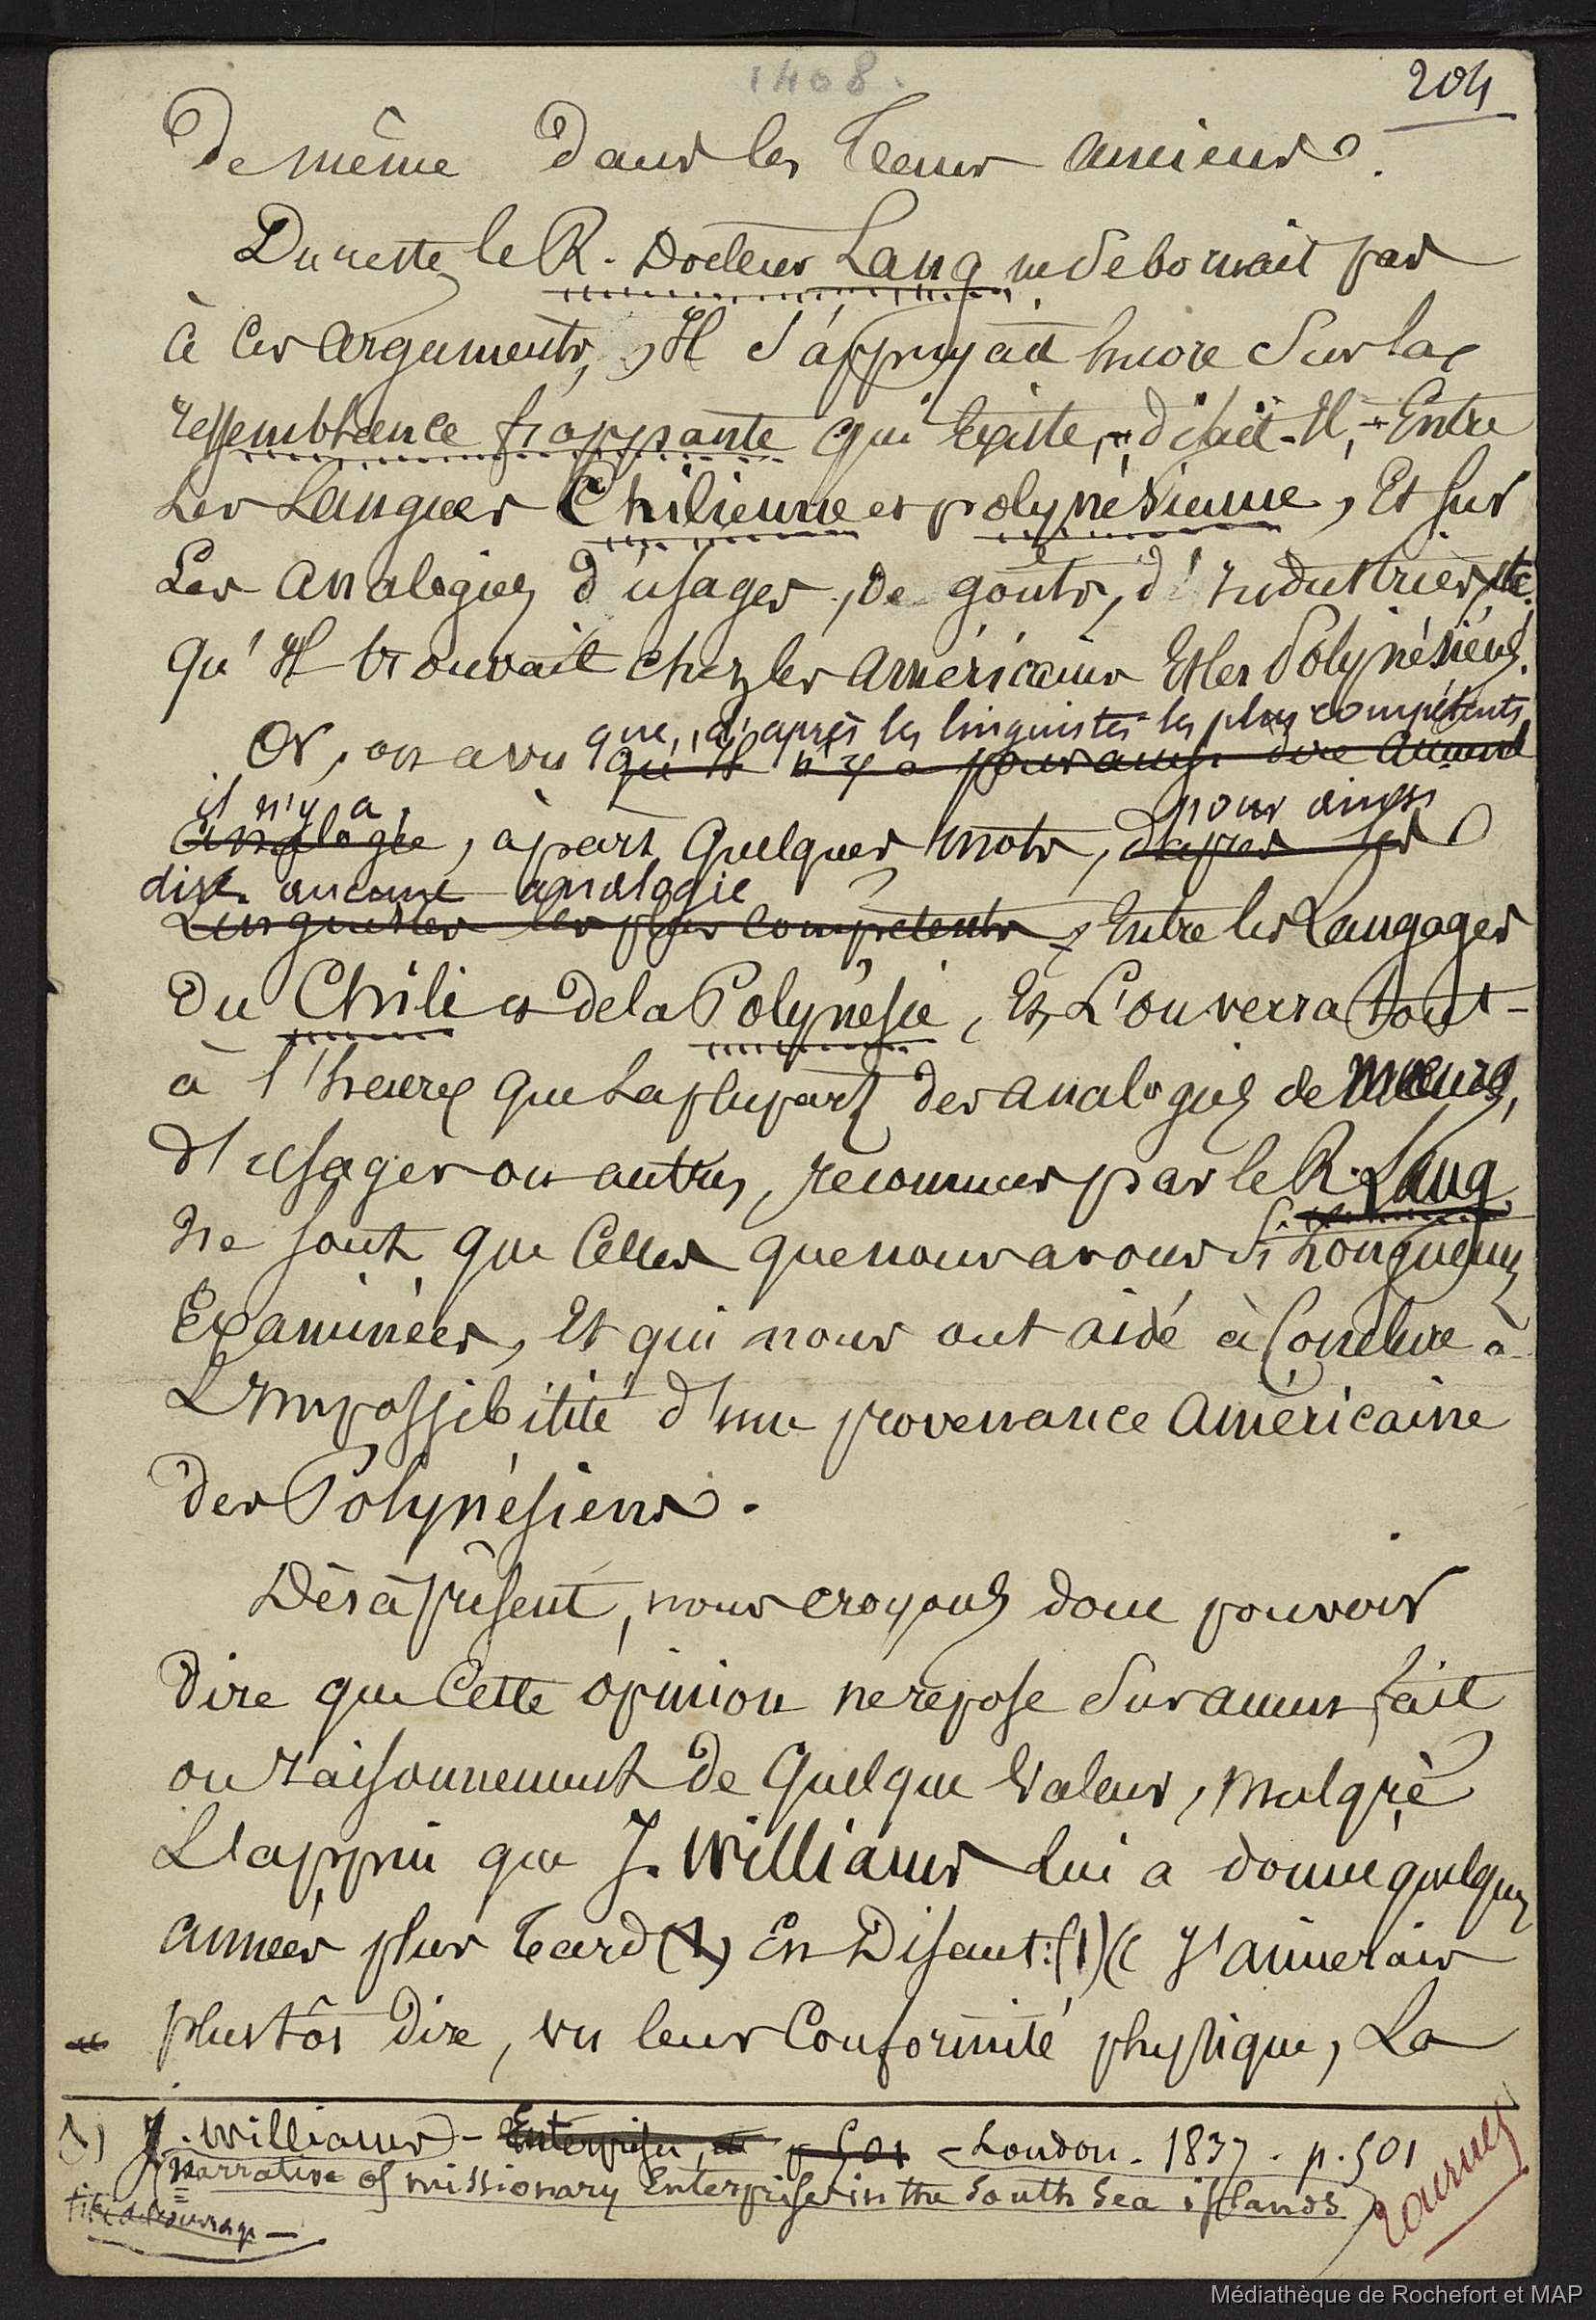 1408.
204
De même dans les temps anciens.
Du reste, le R. Docteur Lang ne se bornait pas
à ces arguments, Il s'appuyait encore sur la
ressemblance frappante qui existe, - disait-Il, - Entre
Les Langues Chilienne et polynésienne, Et sur
Les analogies d'usages, de goûts, d'Industries, etc.
qu'Il trouvait chez les américains Et les Polynésiens.
que, d'après les linguistes les plus compétents,
Or, on a vu qu'Il n'y a pour ainsi dire aucune
il n'y a, pour ainsi
analogie, à part quelques mots, d'après les
dire aucune analogie
Linguistes les plus compétents, Entre les Langages
Du Chili et de la Polynésie, Et, L'on verra tout-
à l'heure que La plupart des analogies de mœurs,
d'usages ou autres, reconnues par le R. Lang
ne sont que Celles que nous avons si Longuement
Examinées, Et qui nous ont aidé à Conclure à
L'Impossibilité d'une provenance américaine
des Polynésiens.
Dès à présent, nous croyons donc pouvoir
Dire que Cette opinion ne repose sur aucun fait
ou raisonnement de quelque valeur, malgré
L'appui que J. Williams Lui a donné quelques
années plus tard (1) En Disant: (1) « J'aimerais
« plustôt dire, vu leur Conformité physique, La
1) J. Williams - Enterprises, p 501 - London. 1837. p. 501
Narrative of missionary Enterprises in the South Sea islands
titre de l'ouvrage
Tournez
Médiathèque de Rochefort et MAP